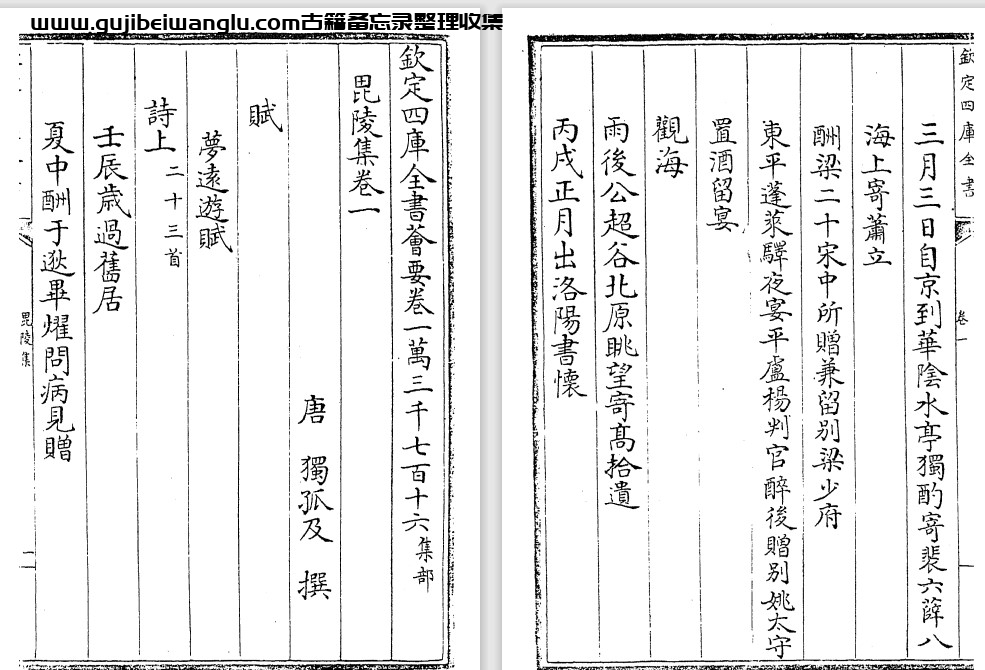 www.gujibeiwanglu.com古籍备忘录整理收集
欽定四庫全書薈要卷一萬三千七百十六集部
毘陵集卷一
唐 獨孤及 撰
賦
夢遠遊賦
詩上二十三首
壬辰歲過舊居
夏中酬于逖畢燿問病見贈
毘陵集
一
欽定四庫全書
卷一
三月三日自京到華陰水亭獨酌寄裴六薛八
海上寄蕭立
酬梁二十宋中所贈兼留別梁少府
東平蓬萊驛夜宴平盧楊判官醉後贈別姚太守
置酒留宴
觀海
雨後公超谷北原眺望寄高拾遺
丙戌正月出洛陽書懷